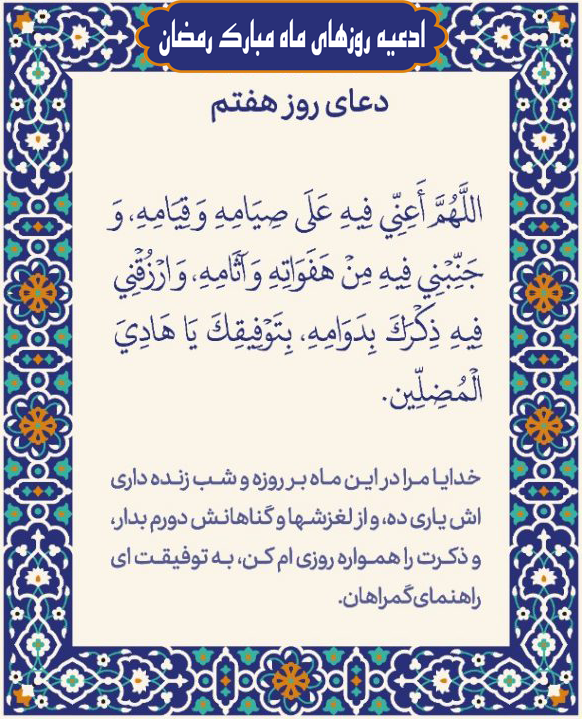 ادعیه روزهای ماه مبارک رمضان
دعای روز هفتم
اللَّهُمَّ أَعِنِّي فِيهِ عَلَى صِيَامِهِ وَقِيَامِهِ، وَ
جَنِّبْنِي فِيهِ مِنْ هَفَوَاتِهِ وَآثَامِهِ، وَارْزُقْنِي
فِيهِ ذِكْرَكَ بِدَوَامِهِ، بِتَوْفِيقِكَ يَا هَادِيَ
الْمُضِلِّين.
خدایا مرا در این ماه بر روزه و شب زنده داری
اش یاری ده، و از لغزشها و گناهانش دورم بدار،
و ذکرت را همواره روزی ام کن، به توفیقت ای
راهنمای گمراهان.